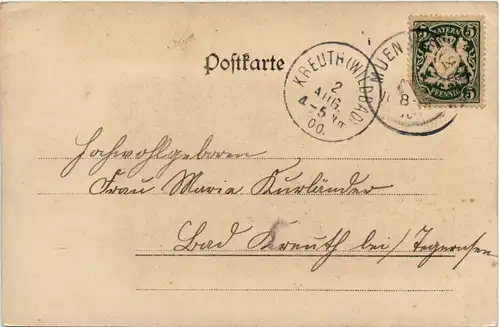 BAYERN
5 5
PFENNIG
Postkarte
KREUTH (WILDBAD)
2
AUG.
4-5 Nm
00.
MUEN
8-
Hochwohlgeboren
Frau Marie Kurländer
Bad Kreuth bei/Tegernsee